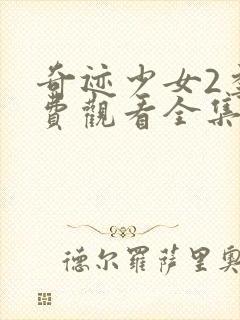 奇迹少女2
費觀看全集
德尔羅萨里奧